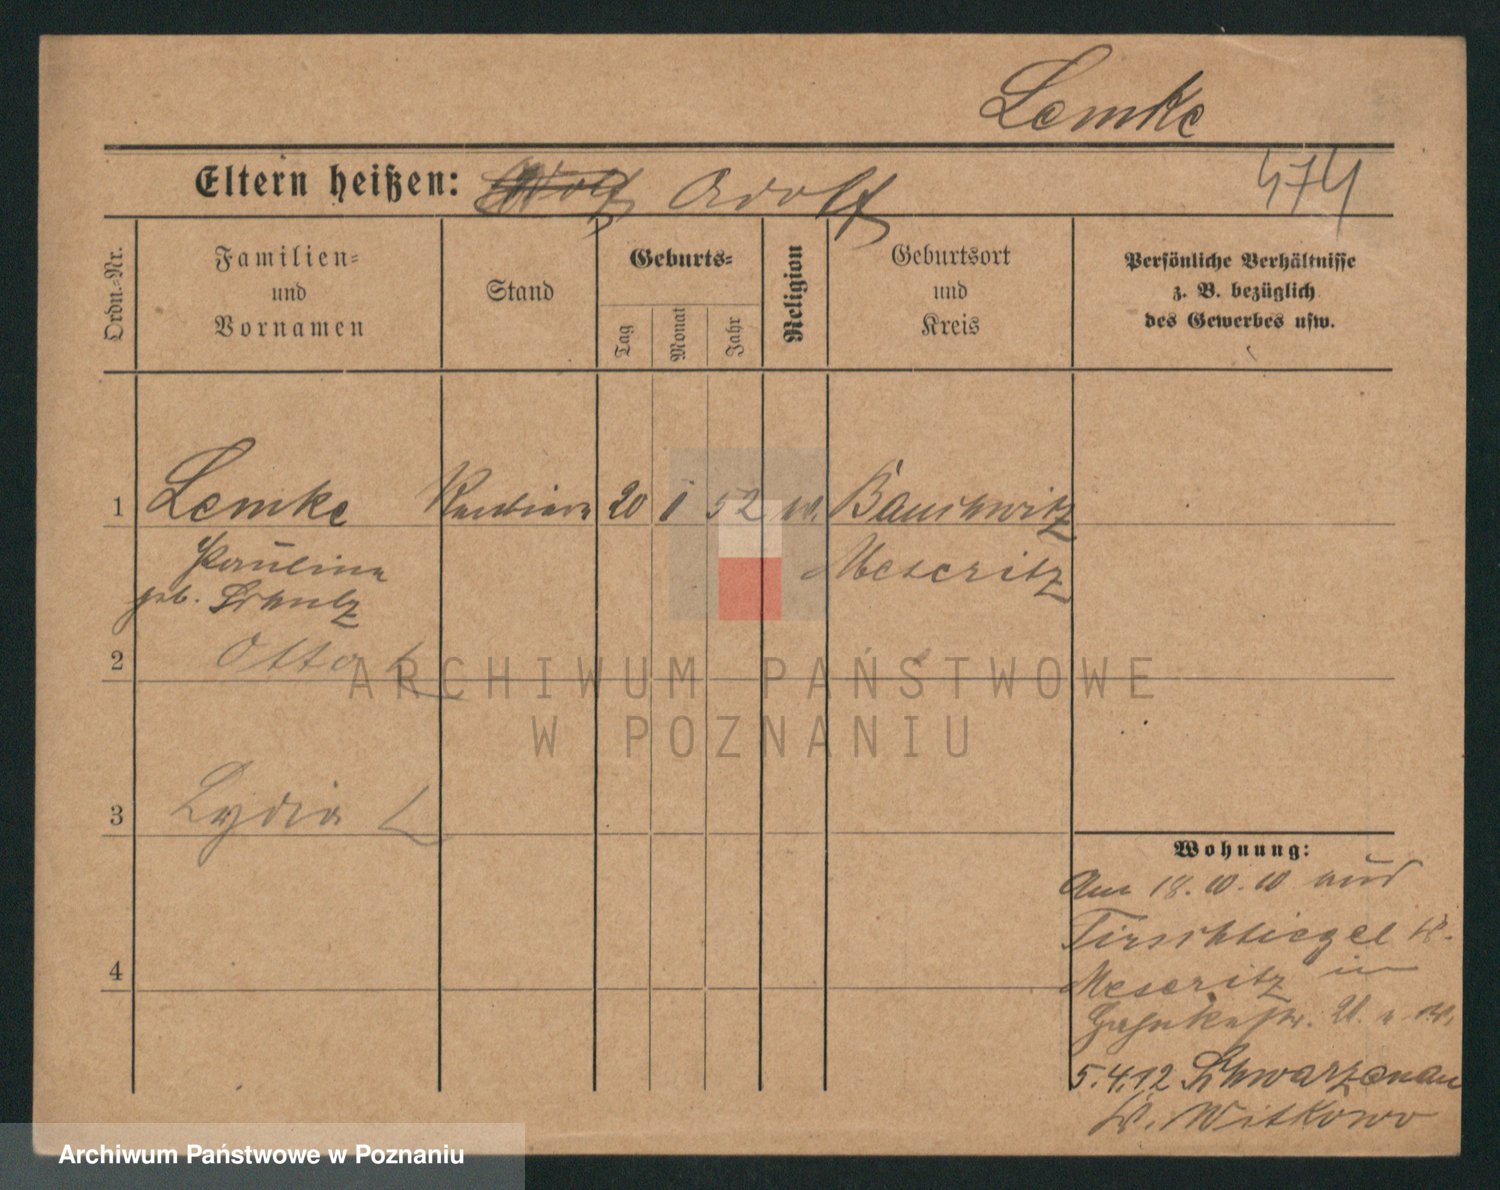 Lemke
Eltern heißen: Adolf
474
Ordn.=Nr.
Familien=
und
Vornamen
Stand
Geburts=
Tag
Monat
Jahr
Religion
Geburtsort
und
Kreis
Persönliche Verhältnisse
z. B. bezüglich
des Gewerbes usw.
1 Lemke 20 1 52 Bauchwitz
Pauline Meseritz
geb. Schulz
2 Otto L
3 Lydia L
4
Wohnung:
Am 18. 10. 10 aus
Tirschtiegel Kr.
Meseritz in
5.4.12 Schwarzenau
Kr. Witkowo
ARCHIWUM PAŃSTWOWE
W POZNANIU
Archiwum Państwowe w Poznaniu